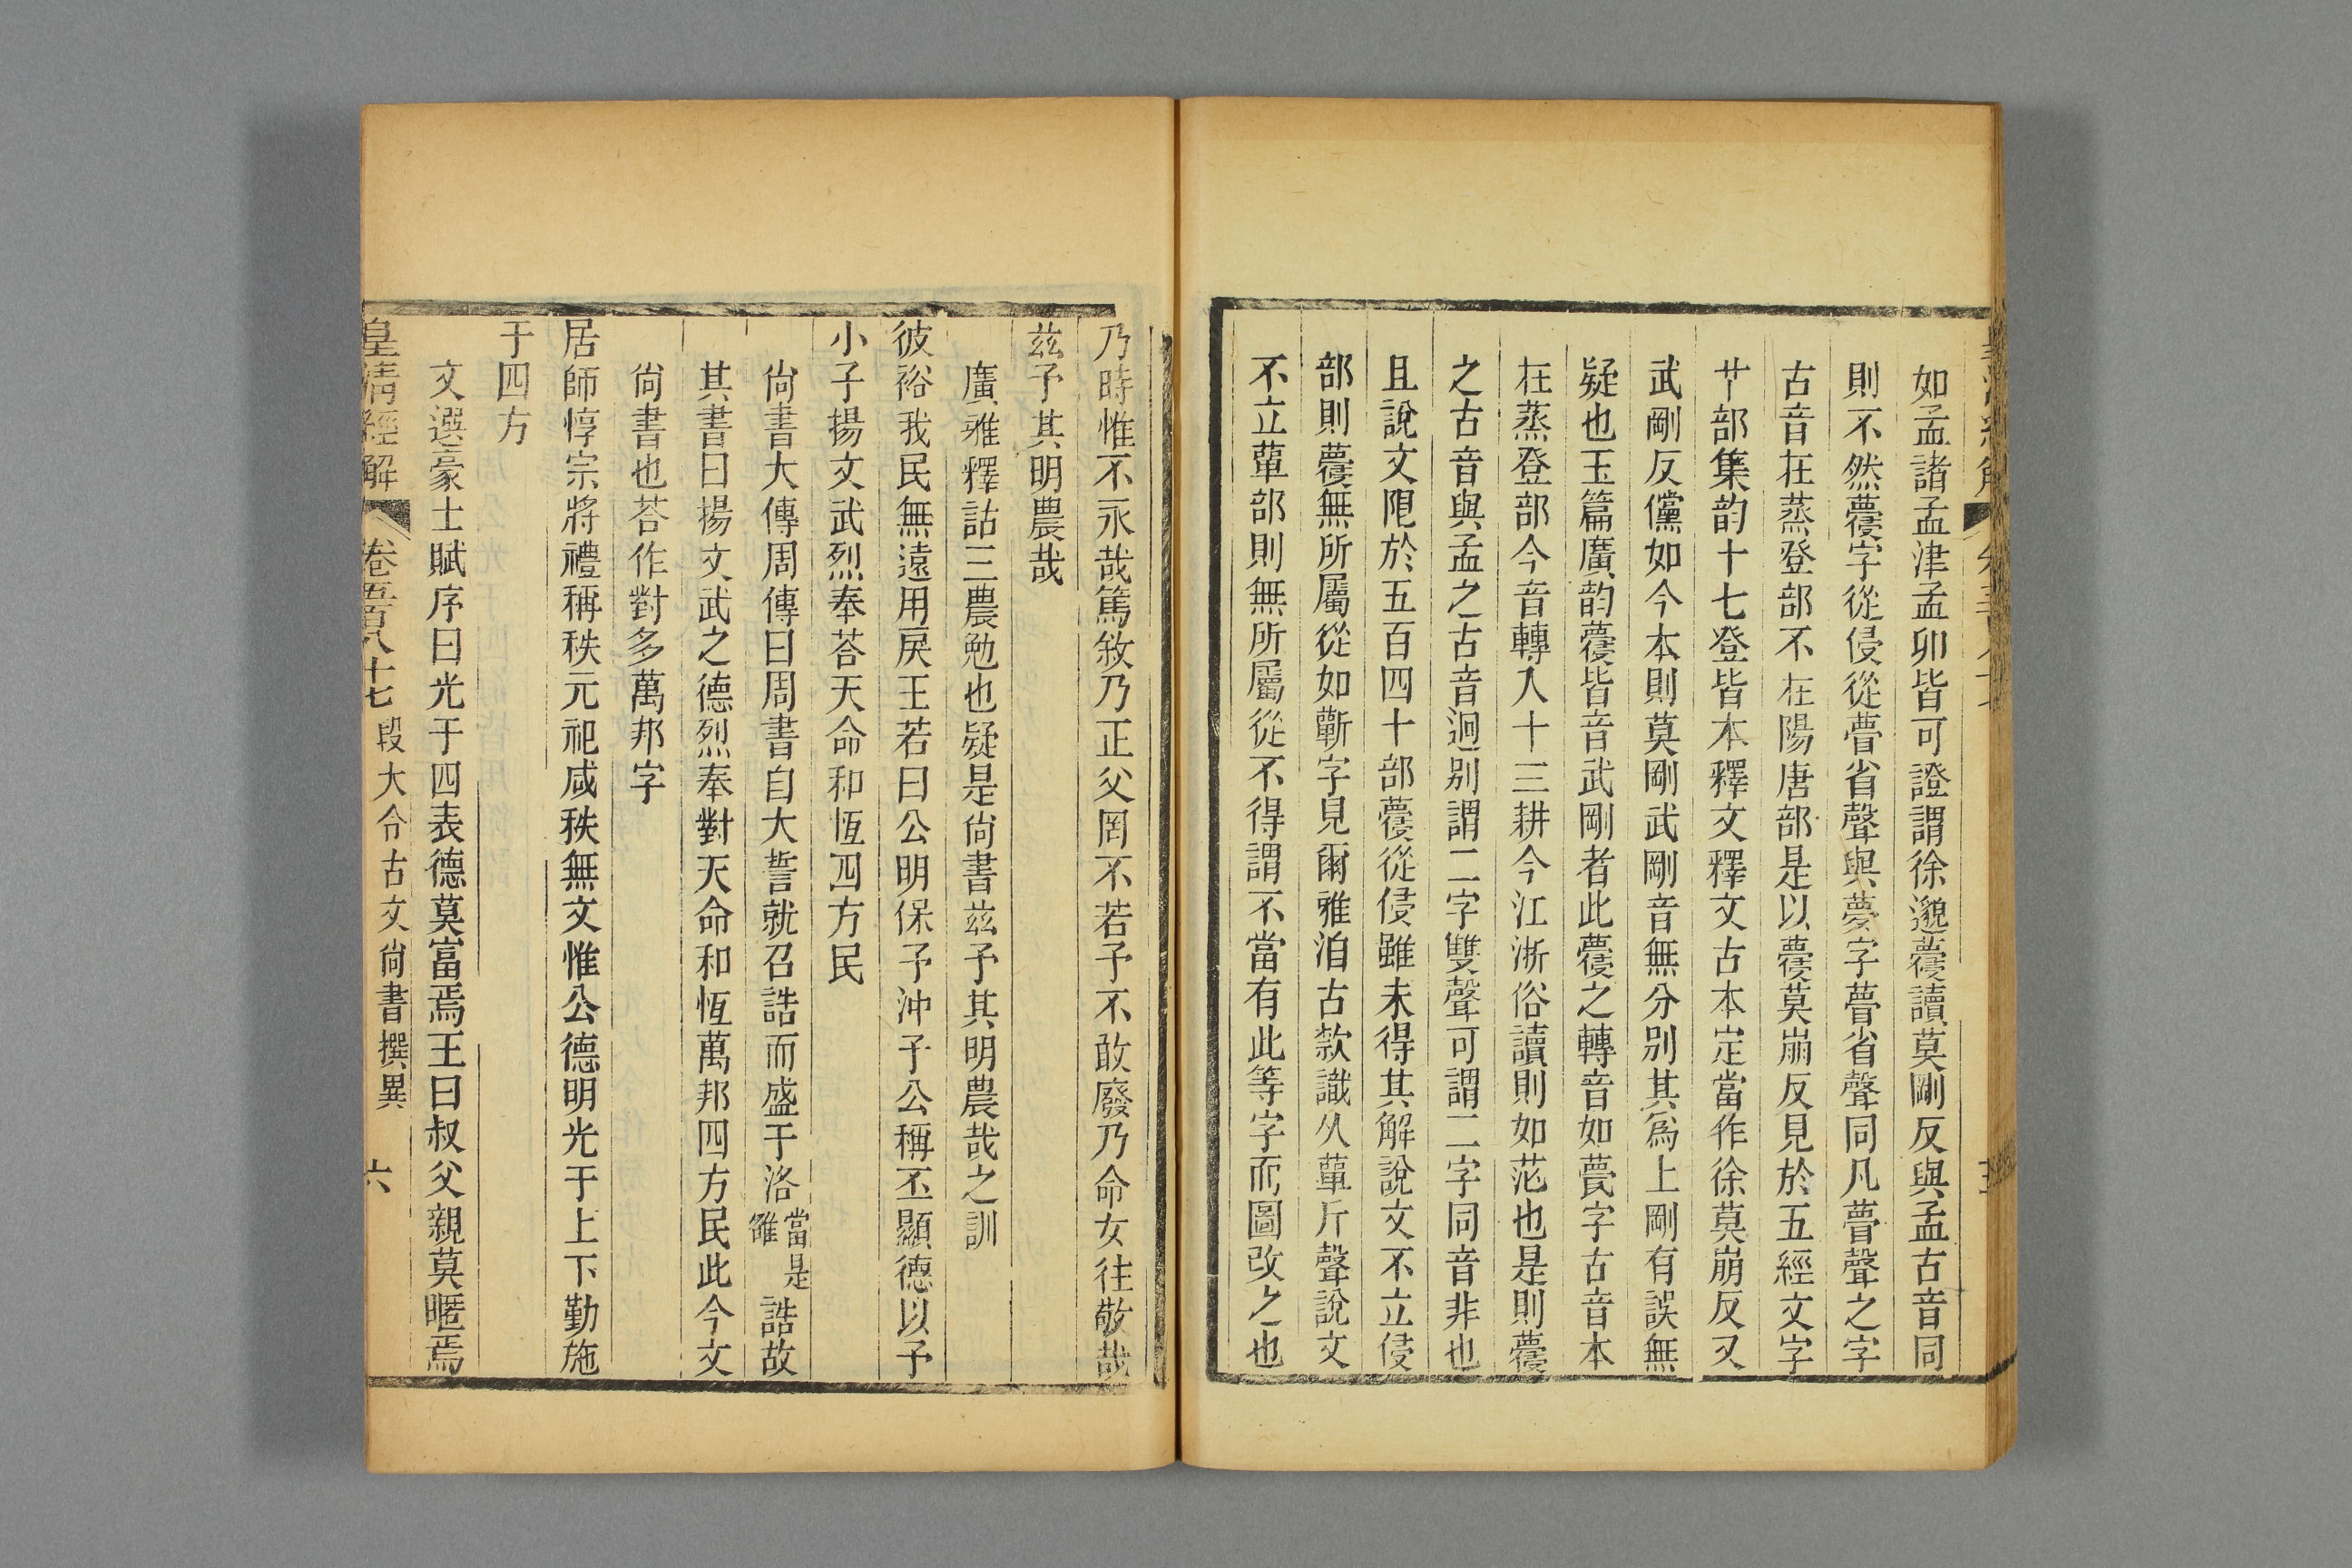 如孟諸孟津孟卯皆可證謂徐邈㝱讀莫剛反與孟古音同
則不然㝱字從侵從瞢省聲與夢字瞢省聲同凡瞢聲之字
古音在蒸登部不在陽唐部是以㝱莫崩反見於五經文字
艸部集韵十七登皆本釋文釋文古本定當作徐莫崩反又
武剛反儻如今本則莫剛武剛音無分別其爲上剛有誤無
疑也玉篇廣韵㝱皆音武剛者此㝱之轉音如甍字古音本
在蒸登部今音轉入十三耕今江浙俗讀則如茫也是則㝱
之古音與孟之古音迥别謂二字雙聲可謂二字同音非也
且說文限於五百四十部㝱從侵雖未得其解說文不立侵
部則㝱無所屬從如蘄字見爾雅洎古款識从蘄斤聲說文
不立部則無所屬從不得謂不當有此等字而圖改之也
乃時惟不永哉篤敘乃正父罔不若予不敢廢乃命女往敬哉
玆予其明農哉
廣雅釋詁三農勉也疑是尙書玆予其明農哉之訓
彼裕我民無遠用戾王若曰公明保予沖子公稱丕顯德以予
小子揚文武烈奉荅天命和恆四方民
尙書大傳周傳曰周書自大誓就召誥而盛于洛當是雒誥故
其書曰揚文武之德烈奉對天命和恆萬邦四方民此今文
尙書也荅作對多萬邦字
居師惇宗將禮稱秩元祀咸秩無文惟公德明光于上下勤施
于四方
文選豪士賦序曰光于四表德莫富焉王曰叔父親莫暱焉
皇清經解 卷五百八十七 段大令古文尙書撰異 六